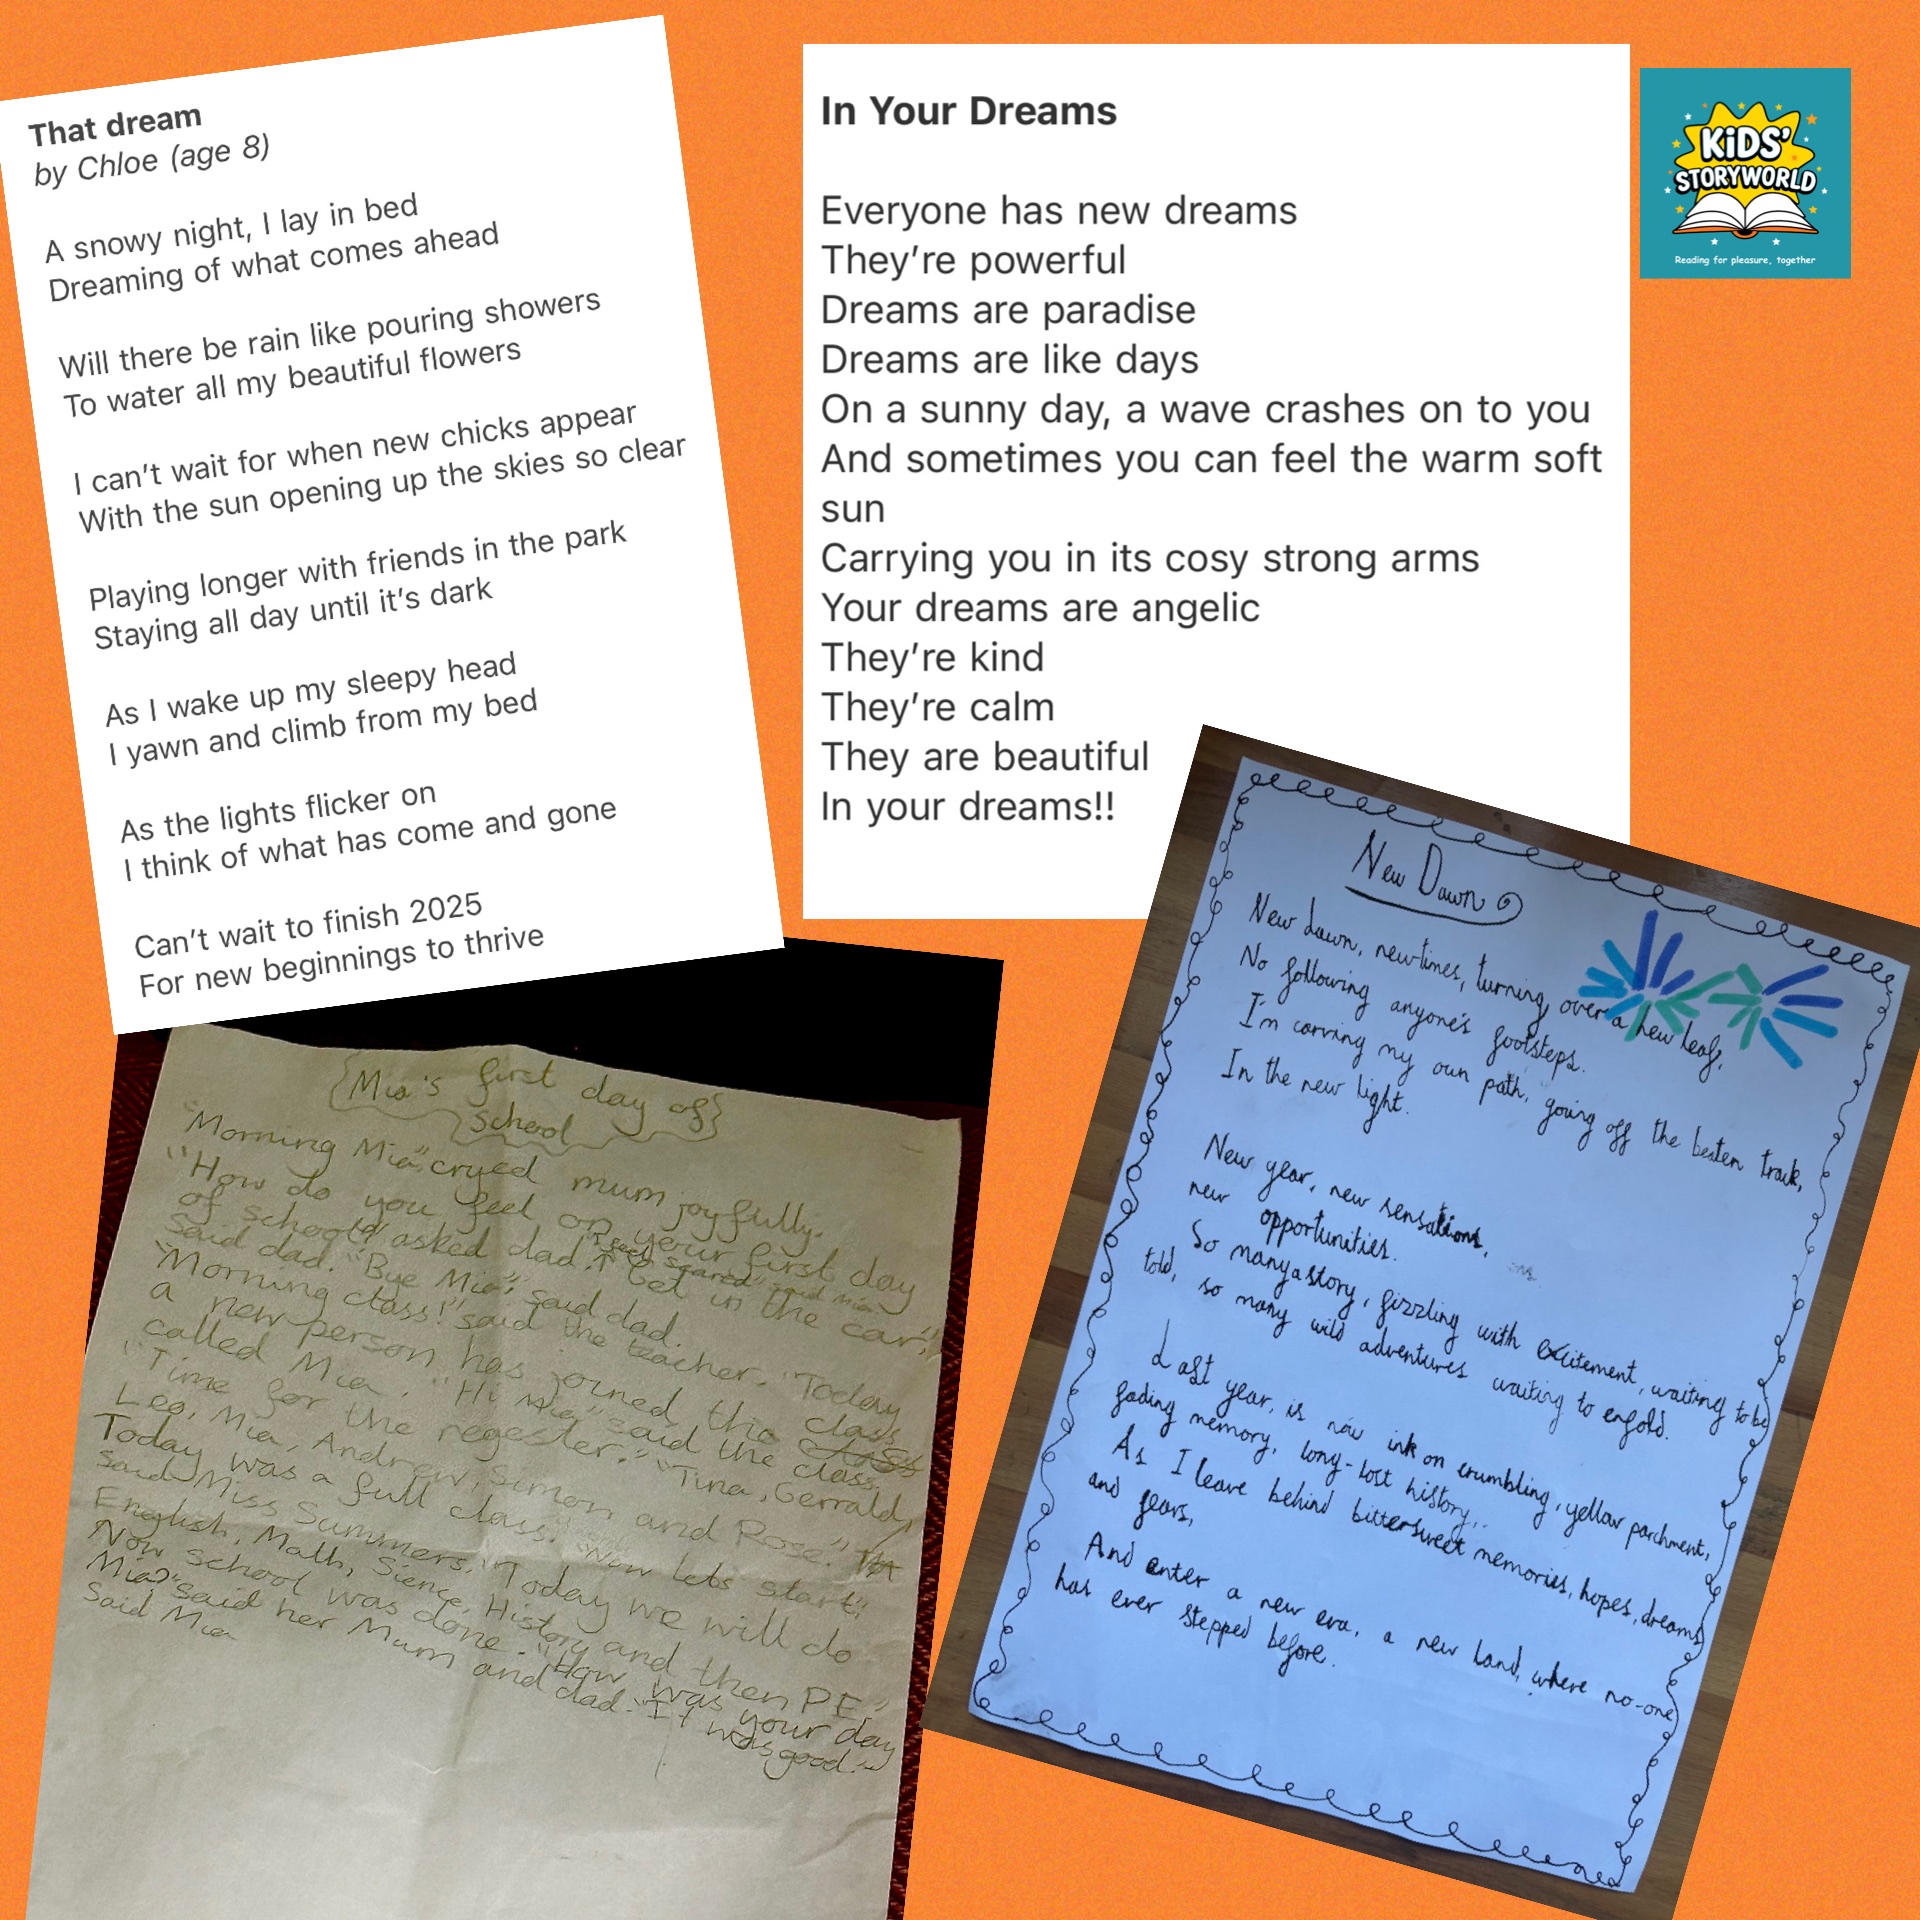 That dream
by Chloe (age 8)
A snowy night, I lay in bed
Dreaming of what comes ahead
Will there be rain like pouring showers
To water all my beautiful flowers
I can't wait for when new chicks appear
With the sun opening up the skies so clear
Playing longer with friends in the park
Staying all day until it's dark
As I wake up my sleepy head
I yawn and climb from my bed
As the lights flicker on
I think of what has come and gone
Can't wait to finish 2025
For new beginnings to thrive
In Your Dreams
Everyone has new dreams
They're powerful
Dreams are paradise
Dreams are like days
On a sunny day, a wave crashes on to you
And sometimes you can feel the warm soft
sun
Carrying you in its cosy strong arms
Your dreams are angelic
They're kind
They're calm
They are beautiful
In your dreams!!
KiDS'
STORYWORLD
Reading for pleasure, together
Mia's first day of
School
"Morning Mia", cryed mum joyfully.
"How do you feel on your first day
of school" asked dad. "I feel scared" said mia. "Get in the car",
said dad. "Bye Mia", said dad.
"Morning class!" said the teacher. "Today
a new person has joined the class
called Mia. "Hi Mia" said the class.
"Time for the regester." "Tina, Gerrald,
Leo, Mia, Andrew, Simon and Rose."
Today was a full class. "Now lets start"!
said Miss Summers. "Today we will do
English, Math, Sience, History and then PE."
Now school was done. "How was your day
Mia?" said her Mum and dad. "It was good."
said Mia
New Dawn
New dawn, new times, turning over a new leaf,
No following anyone's footsteps.
I'm carving my own path, going off the beaten track,
In the new light.
New year, new sensations,
new opportunities.
So many a story, fizzling with excitement, waiting to be
told, so many wild adventures waiting to enfold.
Last year, is now ink on crumbling, yellow parchment,
fading memory, long-lost history,..
As I leave behind bittersweet memories, hopes, dreams
and fears,
And enter a new era, a new land, where no-one
has ever stepped before.